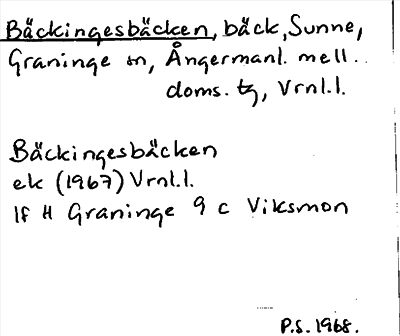 Bäckingesbäcken, bäck, Sunne,
Graninge sn, Ångermanl. mell.
doms. tg, Vrnl.l.
Bäckingesbäcken
ek (1967) Vrnl.l.
lf H Graninge 9 c Viksmon
P.S. 1968.